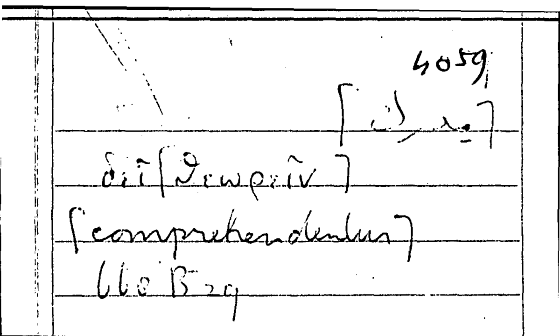 4059
[يدرك]
δεῖ [θεωρεῖν]
[comprehendentur]
B 29